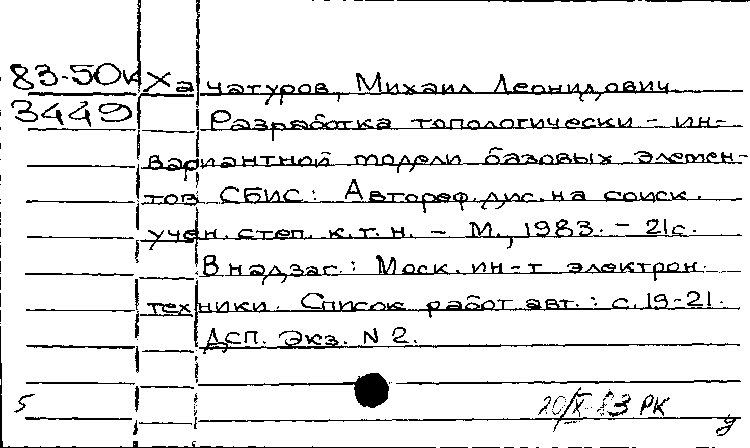 83-50к Хачатуров, Михаил Леонидович
3449 Разработка топологически-ин-
вариантной модели базовых элемен-
тов СБИС: Автореф. дис. на соиск.
учен. степ. к.т.н. - М., 1983. - 21с.
В надзаг.: Моск. ин-т электрон.
техники. Список работ авт.: с. 19-21.
ДСП. Экз. N 2.
5 20/X-83 РК